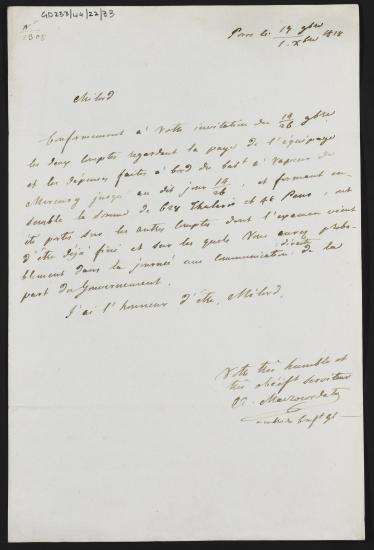 GD233/44/22/33
N°
Poros le 19 9bre
1. Xbre 1828
Milord
Conformement à Votre invitation du 14/26 9bre
les deux Comptes regardant la paye de l'équipage
et les dépenses faites à bord du bat. à Vapeur de
Mercury jusqu' au dit jour 14/26, et formant en-
semble la somme de Thalaris et 48 Paras, ont
été portés sur les autres Comptes dont l'examen vient
d'être déjà fini et sur les quels Vous aurez proba-
blement dans la journée une Communication directe de la
part du Gouvernement.
J'ai l'honneur d'être, Milord,
Votre très humble et
très obéist serviteur